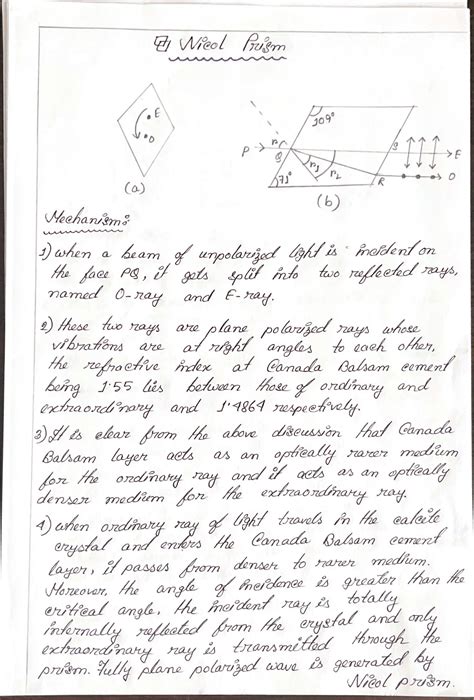 Nicol Prism
E
O
(a)
109°
P
r
Q
r1
r2
71°
S
R
E
O
(b)
Mechanism:
1) when a beam of unpolarized light is incident on
the face PQ, it gets split into two reflected rays,
named O-ray and E-ray.
2) these two rays are plane polarized rays whose
vibrations are at right angles to each other,
the refractive index at Canada Balsam cement
being 1.55 lies between those of ordinary and
extraordinary and 1.4864 respectively.
3) It is clear from the above discussion that Canada
Balsam layer acts as an optically rarer medium
for the ordinary ray and it acts as an optically
denser medium for the extraordinary ray.
4) when ordinary ray of light travels in the calcite
crystal and enters the Canada Balsam cement
layer, it passes from denser to rarer medium.
Moreover, the angle of incidence is greater than the
critical angle, the incident ray is totally
internally reflected from the crystal and only
extraordinary ray is transmitted through the
prism. Fully plane polarized wave is generated by
Nicol prism.